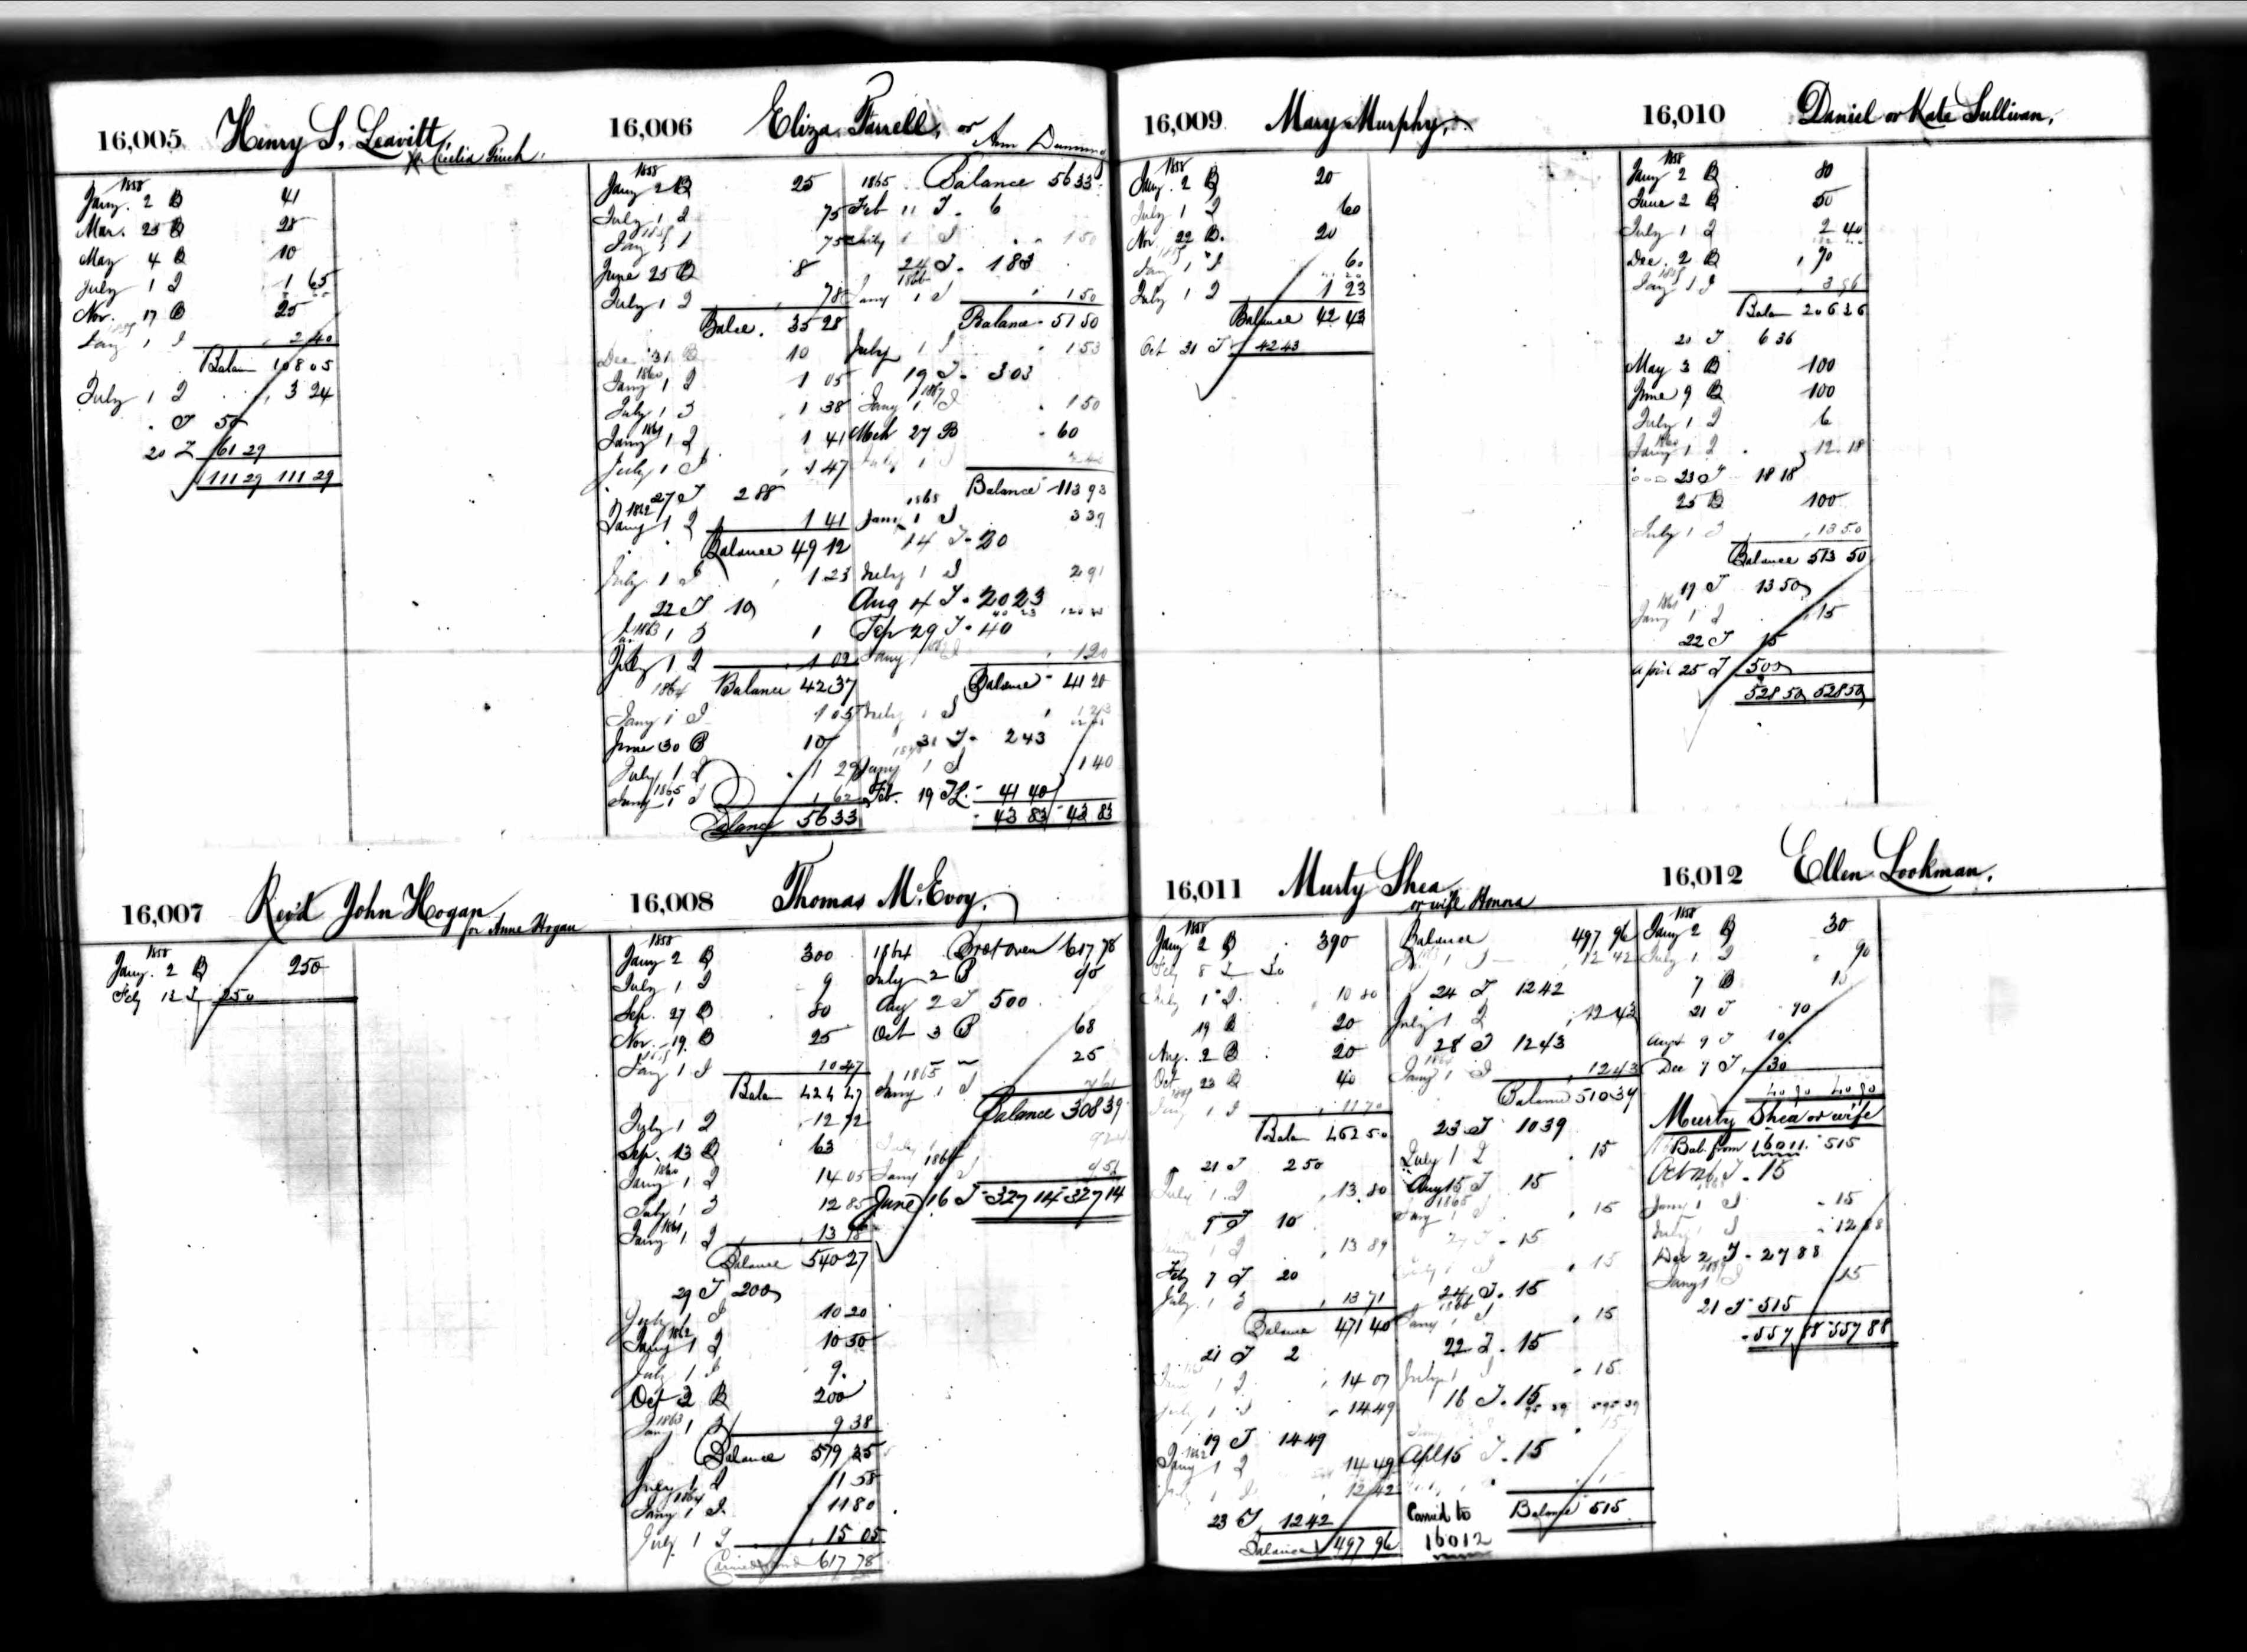 16,005 Henry S. Leavitt,
for Cecelia Finch.
1858
Jany. 2 B 41
Mar. 25 B 28
May 4 B 10
July 1 I 1 65
Nov. 17 B 25
1859
Jany 1 I 2 40
Balan 108 05
July 1 I 3 24
T 50
20 T 61 29
111 29 111 29
16,006 Eliza Farrell, or
Ann
1858
Jany 2 B 25
July 1 I 75
1859
Jany 1 I 75
June 25 B 8
July 1 I 78
Balce. 35 28
Dec 31 B 10
1860
Jany 1 I 1 05
July 1 I 1 38
1861
Jany 1 I 1 41
July 1 I 1 47
27 T 2 88
1862
Jany 1 I 1 41
Balance 49 12
July 1 I 1 23
22 T 10
1863
Jan 1 I 1
July 1 I 1 02
1864 Balance 42 37
Jany 1 I 1 05
June 30 B 10
July 1 I 1 29
1865
Jany 1 I 1 62
Balance 56 33
1865 Balance 56 33
Feb 11 T 6
July 1 I 1 50
24 T 1 83
1866
Jany 1 I 1 50
Balance 51 50
July 1 I 1 53
19 T 3 03
1867
Jany 1 I 1 50
Mch 27 B 60
July 1 I
Balance 113 93
1868
Jany 1 I 3 39
14 T 20
July 1 I 2 91
Aug 4 T 20 23
Sep 29 T 40
Jany 1 I 1 20
Balance 41 20
July 1 I 1 23
31 T 2 43
Jany 1 I 1 40
Feb. 19 T 41 40
43 83 43 83
16,007 Rev'd John Hogan
for Anne Hogan
1858
Jany. 2 B 250
Feby 12 T 250
16,008 Thomas McEvoy.
1858
Jany 2 B 300
July 1 I 9
Sep. 27 B 80
Nov. 19 B 25
1859
Jany 1 I 10 47
Balan 424 47
July 1 I 12 72
Sep. 13 B 63
1860
Jany 1 I 14 05
July 1 I 12 85
1861
Jany 1 I 13 18
Balance 540 27
29 T 200
July 1 I 10 20
1862
Jany 1 I 10 50
July 1 I 9
Oct 2 B 200
1863
Jany 1 I 9 38
Balance 579 35
July 1 I 11 58
1864
Jany 1 I 11 80
July 1 I 15 05
Carried 617 78
1864 Brot over 617 78
July 2 B 90
Aug 2 T 500
Oct 3 B 68
25
1865
Jany 1 I 7 61
Balance 308 39
July 1 I 9 24
Jany 1 I 9 51
June 16 T 327 14 327 14
16,009 Mary Murphy.
1858
Jany. 2 B 20
July 1 I 60
Nov 22 B. 20
1859
Jany 1 I 60
July 1 I 1 23
Balance 42 43
Oct 31 T 42 43
16,010 Daniel or Kate Sullivan,
1858
Jany 2 B 80
June 2 B 50
July 1 I 2 40
Dec. 2 B 70
1859
Jany 1 I 3 96
Balan 206 36
20 T 6 36
May 3 B 100
June 9 B 100
July 1 I 6
1860
Jany 1 I 12 18
23 T 18 18
25 B 100
July 1 I 13 50
Balance 513 50
19 T 13 50
1861
Jany 1 I 15
22 T 15
April 25 T 500
528 50 528 50
16,011 Murty Shea
or wife Honora
1858
Jany 2 B 390
Feby 8 T 30
July 1 I 10 80
19 B 20
Aug. 2 B 20
Oct 23 B 40
1859
Jany 1 I 11 70
Balan 462 50
21 T 2 50
July 1 I 13 80
T 10
Jany 1 I 13 89
Feby 7 T 20
July 1 I 13 71
Balance 471 40
21 T 2
Jany 1 I 14 07
July 1 I 14 49
19 T 14 49
1862
Jany 1 I 14 49
July 1 I 12 42
23 T 12 42
Balance 497 96
Balance 497 96
Jany 1 I 12 42
24 T 12 42
July 1 I 12 43
28 T 12 43
1864
Jany 1 I 12 43
Balance 510 39
23 T 10 39
July 1 I 15
Aug 15 T 15
1865
Jany 1 I 15
T 15
July 1 I 15
24 T. 15
1866
Jany 1 I 15
22 T. 15
July 1 I 15
16 T. 15
15
Apl 15 T. 15
Carried to Balance 515
16012
16,012 Ellen Lookman.
1858
Jany 2 B 30
July 1 I 90
7 B 10
21 T 90
Augt 9 T 10
Dec 7 T 30
40 90 40 90
Murty Shea or wife
Bal. from 16011. 515
Oct T. 15
Jany 1 I 15
July 1 I 12 88
Dec 2 T 27 88
Jany 1 I 15
21 T 515
557 88 557 88